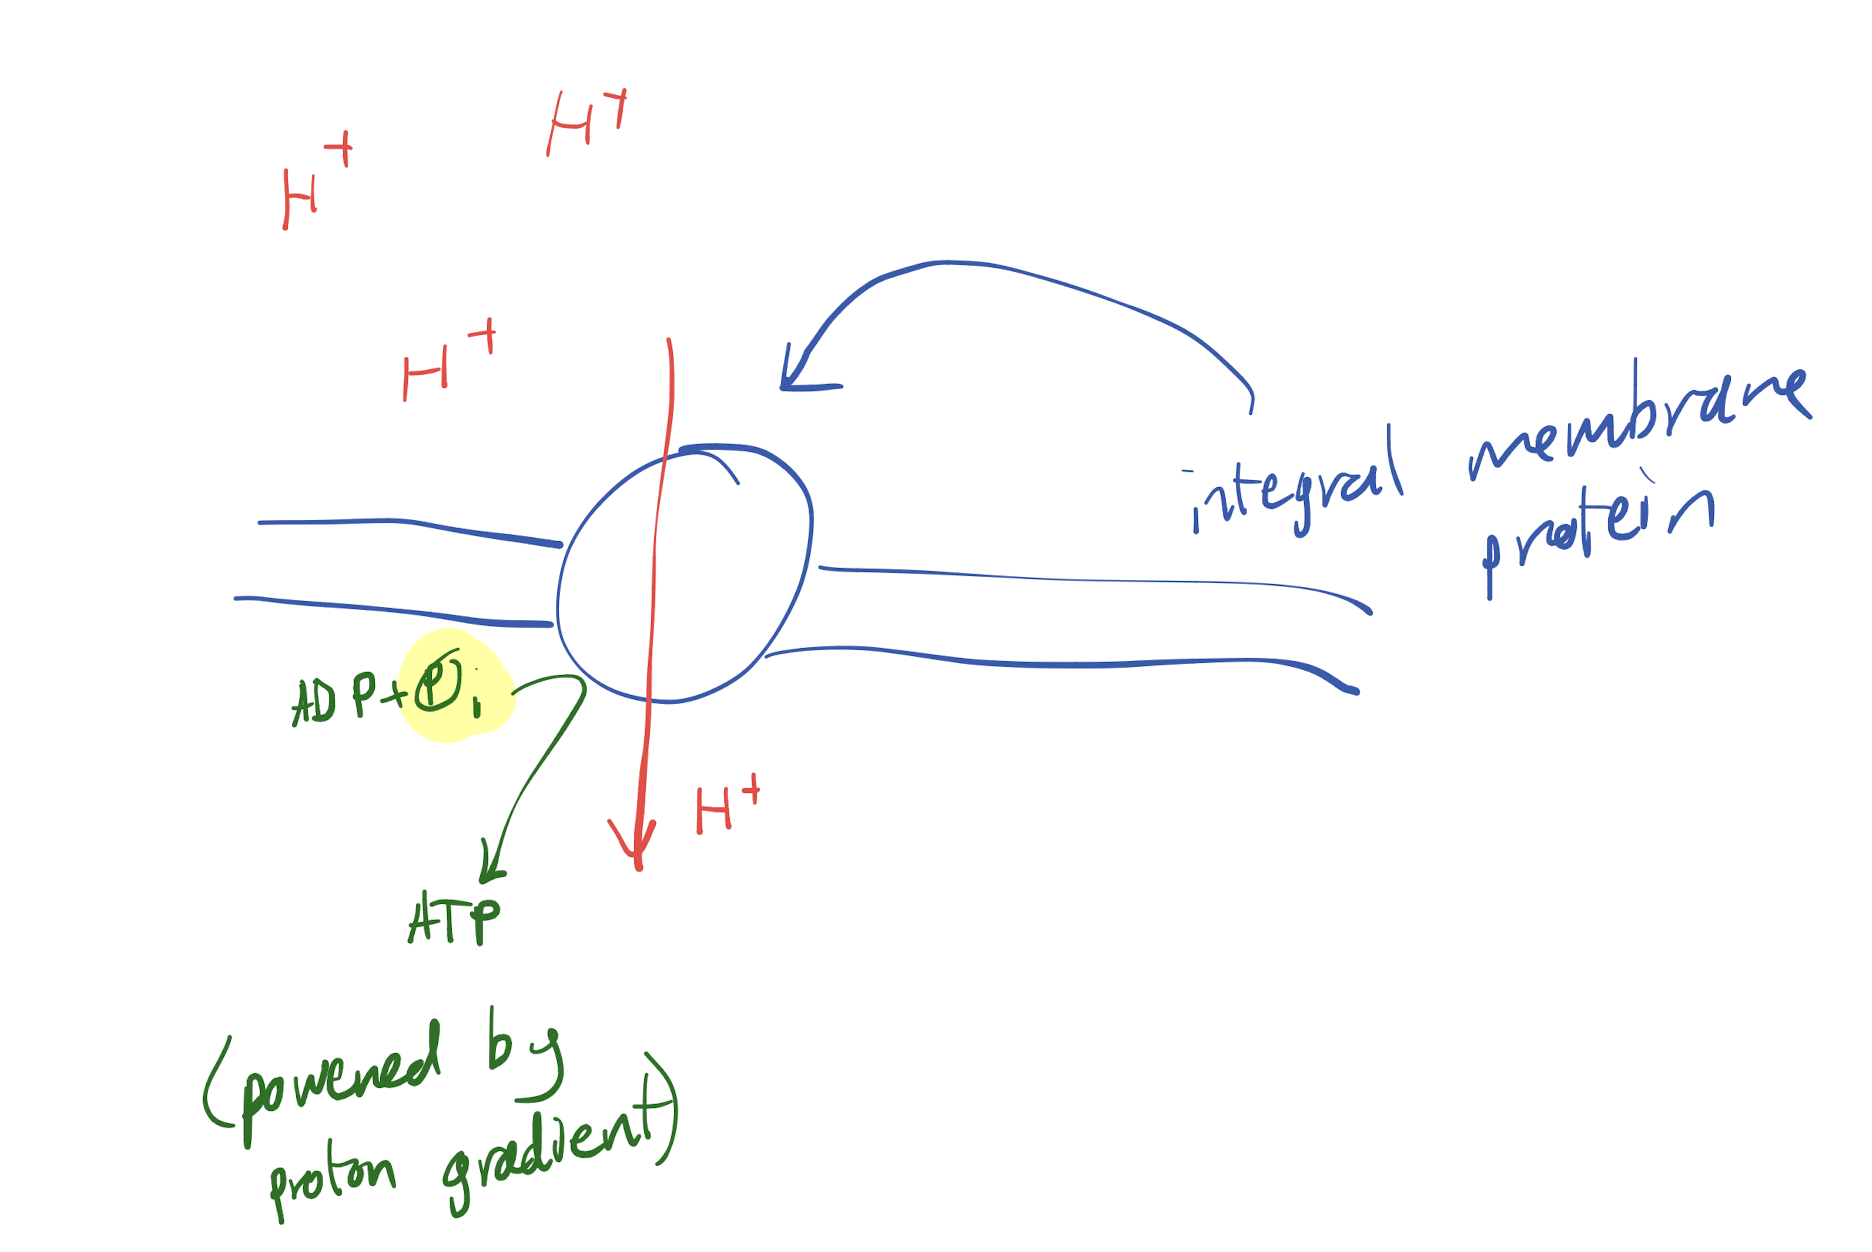 H⁺
H⁺
H⁺
integral membrane
protein
ADP + Pᵢ
H⁺
ATP
(powered by
proton gradient)